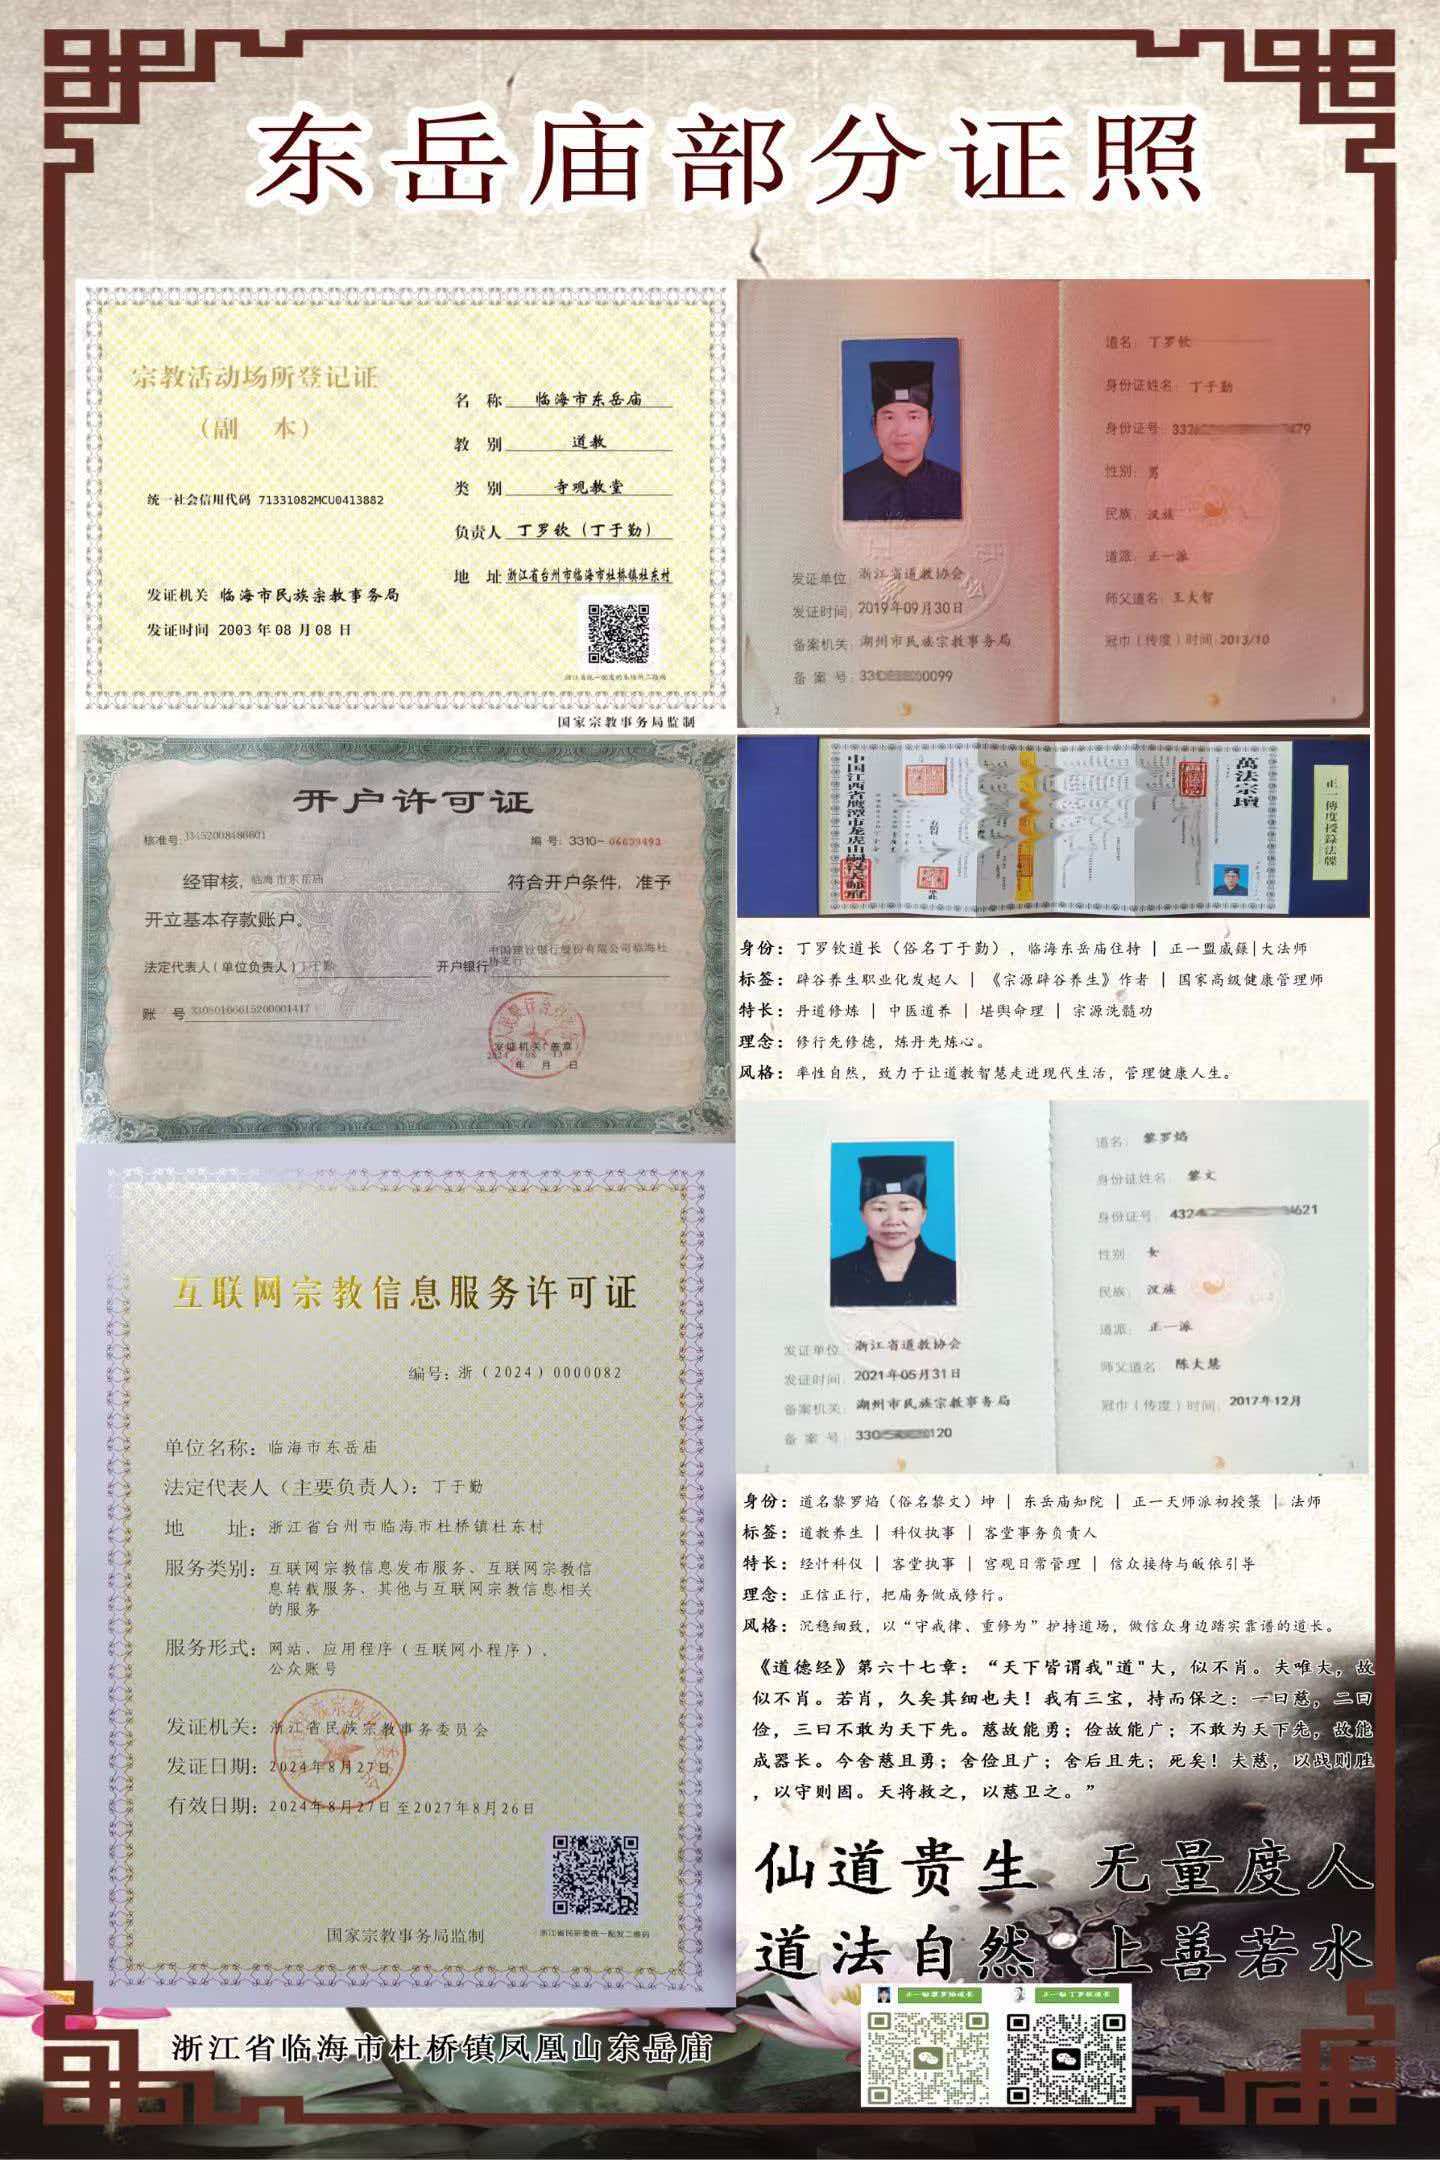 东岳庙部分证照
宗教活动场所登记证
（副 本）
统一社会信用代码 71331082MCU0413882
发证机关 临海市民族宗教事务局
发证时间 2003 年 08 月 08 日
名 称 临海市东岳庙
教 别 道教
类 别 寺观教堂
负责人 丁罗钦（丁于勤）
地 址 浙江省台州市临海市杜桥镇杜东村
国家宗教事务局监制
发证单位: 浙江省道教协会
发证时间: 2019年09月30日
备案机关: 湖州市民族宗教事务局
备 案 号: 330 0099
道名: 丁罗钦
身份证姓名: 丁于勤
身份证号: 332 479
性别: 男
民族: 汉族
道派: 正一派
师父道名: 王大智
冠巾（传度）时间: 2013/10
2
3
开户许可证
核准号: J3452008486601
编 号: 3310-06639493
经审核, 临海市东岳庙 符合开户条件, 准予
开立基本存款账户。
法定代表人（单位负责人）丁于勤 开户银行 中国建设银行股份有限公司临海杜桥支行
账 号 33050166615200001417
发证机关（盖章）
年 月 日
萬法宗壇
中国江西省鹰潭市龙虎山嗣汉天师府
正一傳度授籙法牒
身份：丁罗钦道长（俗名丁于勤），临海东岳庙住持 | 正一盟威籙|大法师
标签：辟谷养生职业化发起人 | 《宗源辟谷养生》作者 | 国家高级健康管理师
特长：丹道修炼 | 中医道养 | 堪舆命理 | 宗源洗髓功
理念：修行先修德，炼丹先炼心。
风格：率性自然，致力于让道教智慧走进现代生活，管理健康人生。
互联网宗教信息服务许可证
编号: 浙（2024）0000082
单位名称: 临海市东岳庙
法定代表人（主要负责人）: 丁于勤
地 址: 浙江省台州市临海市杜桥镇杜东村
服务类别: 互联网宗教信息发布服务、互联网宗教信
息转载服务、其他与互联网宗教信息相关
的服务
服务形式: 网站、应用程序（互联网小程序）、
公众账号
发证机关: 浙江省民族宗教事务委员会
发证日期: 2024年8月27日
有效日期: 2024年8月27日至2027年8月26日
国家宗教事务局监制
浙江省民宗委统一配发二维码
发证单位: 浙江省道教协会
发证时间: 2021年05月31日
备案机关: 湖州市民族宗教事务局
备 案 号: 330 120
道名: 黎罗焰
身份证姓名: 黎文
身份证号: 432 4621
性别 女
民族: 汉族
道派: 正一派
师父道名 陈大慧
冠巾（传度）时间: 2017年12月
2
3
身份：道名黎罗焰（俗名黎文）坤 | 东岳庙知院 | 正一天师派初授箓 | 法师
标签：道教养生 | 科仪执事 | 客堂事务负责人
特长：经忏科仪 | 客堂执事 | 宫观日常管理 | 信众接待与皈依引导
理念：正信正行，把庙务做成修行。
风格：沉稳细致，以“守戒律、重修为”护持道场，做信众身边踏实靠谱的道长。
《道德经》第六十七章：“天下皆谓我"道"大，似不肖。夫唯大，故
似不肖。若肖，久矣其细也夫！我有三宝，持而保之：一曰慈，二曰
俭，三曰不敢为天下先。慈故能勇；俭故能广；不敢为天下先，故能
成器长。今舍慈且勇；舍俭且广；舍后且先；死矣！夫慈，以战则胜
，以守则固。天将救之，以慈卫之。”
仙道贵生 无量度人
道法自然 上善若水
正一派黎罗焰道长
正一派丁罗钦道长
浙江省临海市杜桥镇凤凰山东岳庙